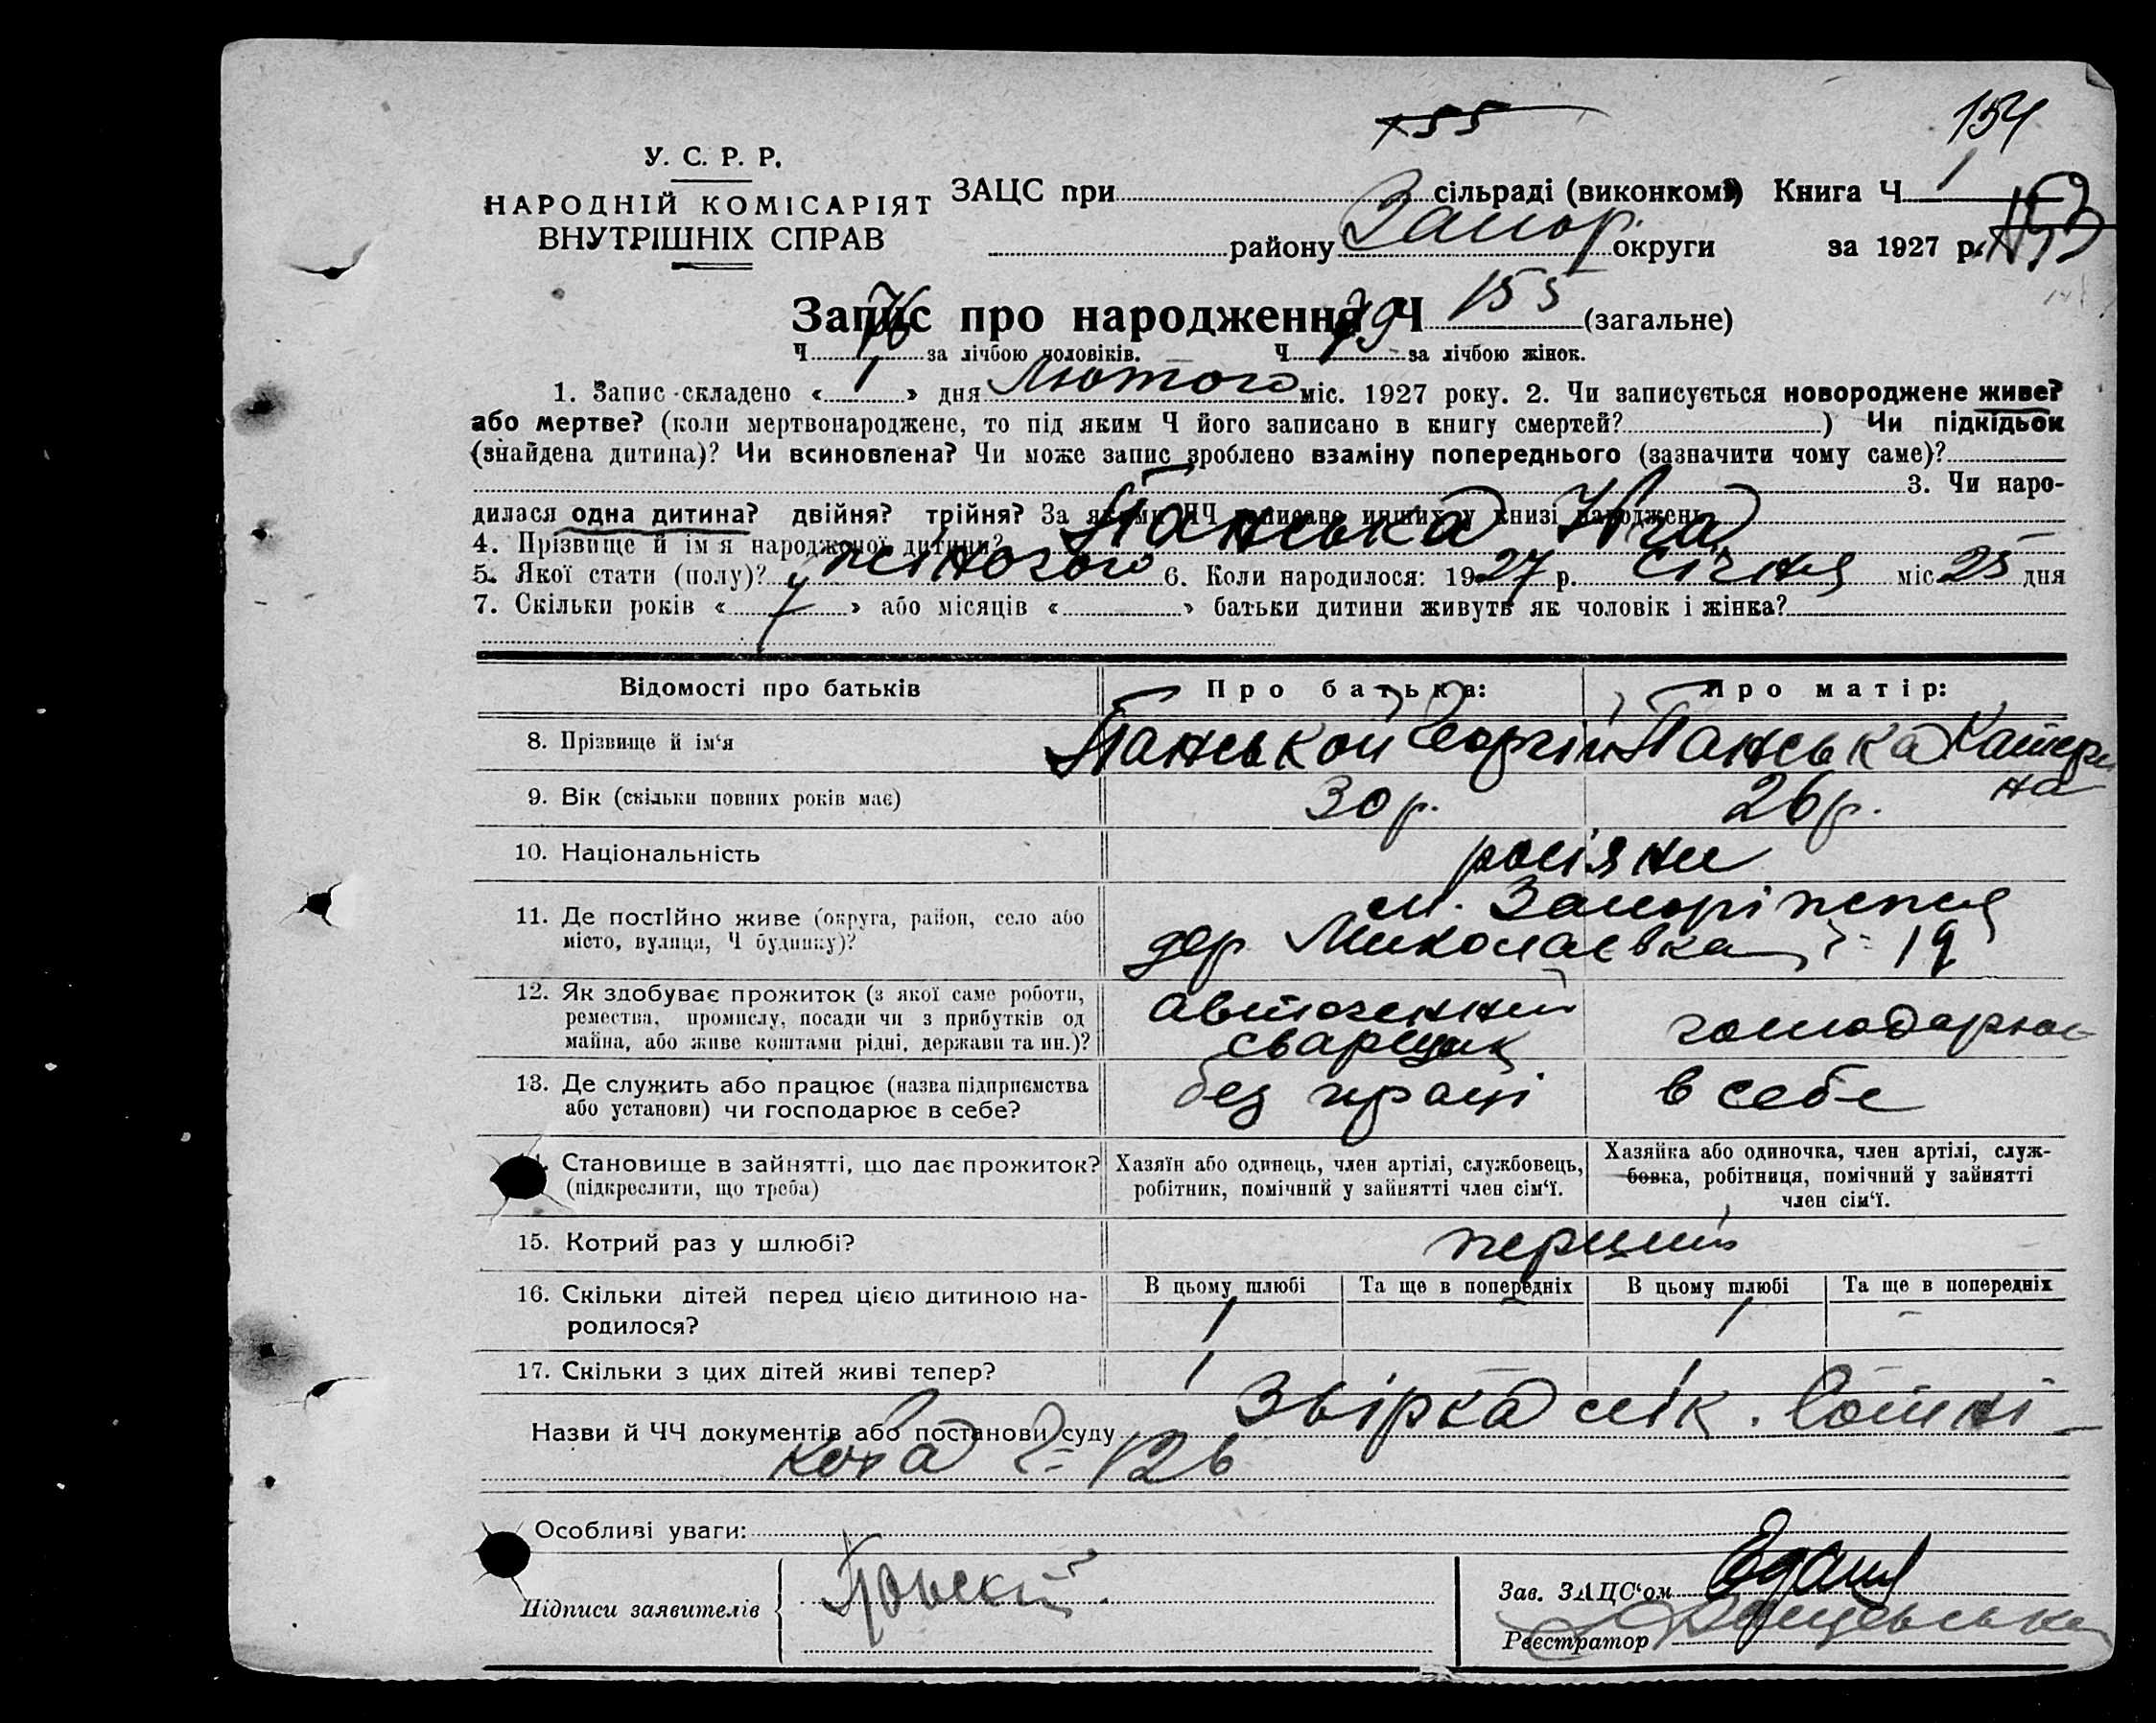 155
154
У. С. Р. Р.
НАРОДНІЙ КОМІСАРІЯТ
ВНУТРІШНІХ СПРАВ
ЗАЦС при сільраді (виконкомі) Книга Ч 1
району Запор. округи за 1927 р. 153
Запис про народження Ч 155 (загальне)
Ч 76 за лічбою чоловіків. Ч 79 за лічбою жінок.
1. Запис складено « 1 » дня Лютого міс. 1927 року. 2. Чи записується новороджене живе?
або мертве? (коли мертвонароджене, то під яким Ч його записано в книгу смертей? ) Чи підкідьок
(знайдена дитина)? Чи всиновлена? Чи може запис зроблено взаміну попереднього (зазначити чому саме)?
3. Чи наро-
дилася одна дитина? двійня? трійня? За якими ЧЧ записано инших у книзі народжень
4. Прізвище й ім'я народженої дитини? Панська
5. Якої стати (полу)? жіночого 6. Коли народилося: 1927 р. січня міс. 25 дня
7. Скільки років « 7 » або місяців « » батьки дитини живуть як чоловік і жінка?
Відомості про батьків Про батька: Про матір:
8. Прізвище й ім'я Панськой Георгій Панська Катери
на
9. Вік (скільки повних років має) 30 р. 26 р.
10. Національність росіяни
11. Де постійно живе (округа, район, село або
місто, вулиця, Ч будинку)?
м. Запоріжжя
дер Миколаєвка 19
12. Як здобуває прожиток (з якої саме роботи,
ремества, промислу, посади чи з прибутків од
майна, або живе коштами рідні, держави та ин.)?
автогенний
сварщик
господарює
13. Де служить або працює (назва підприємства
або установи) чи господарює в себе?
без праці в себе
14. Становище в зайнятті, що дає прожиток?
(підкреслити, що треба)
Хазяїн або одинець, член артілі, службовець,
робітник, помічний у зайнятті член сім'ї.
Хазяйка або одиночка, член артілі, служ-
бовка, робітниця, помічний у зайнятті
член сім'ї.
15. Котрий раз у шлюбі? перший
16. Скільки дітей перед цією дитиною на-
родилося?
В цьому шлюбі Та ще в попередніх В цьому шлюбі Та ще в попередніх
1 – 1 –
17. Скільки з цих дітей живі тепер? 1 1
Назви й ЧЧ документів або постанови суду Звірка лік.
126
Особливі уваги:
Підписи заявителів
Зав. ЗАЦС'ом
Реєстратор